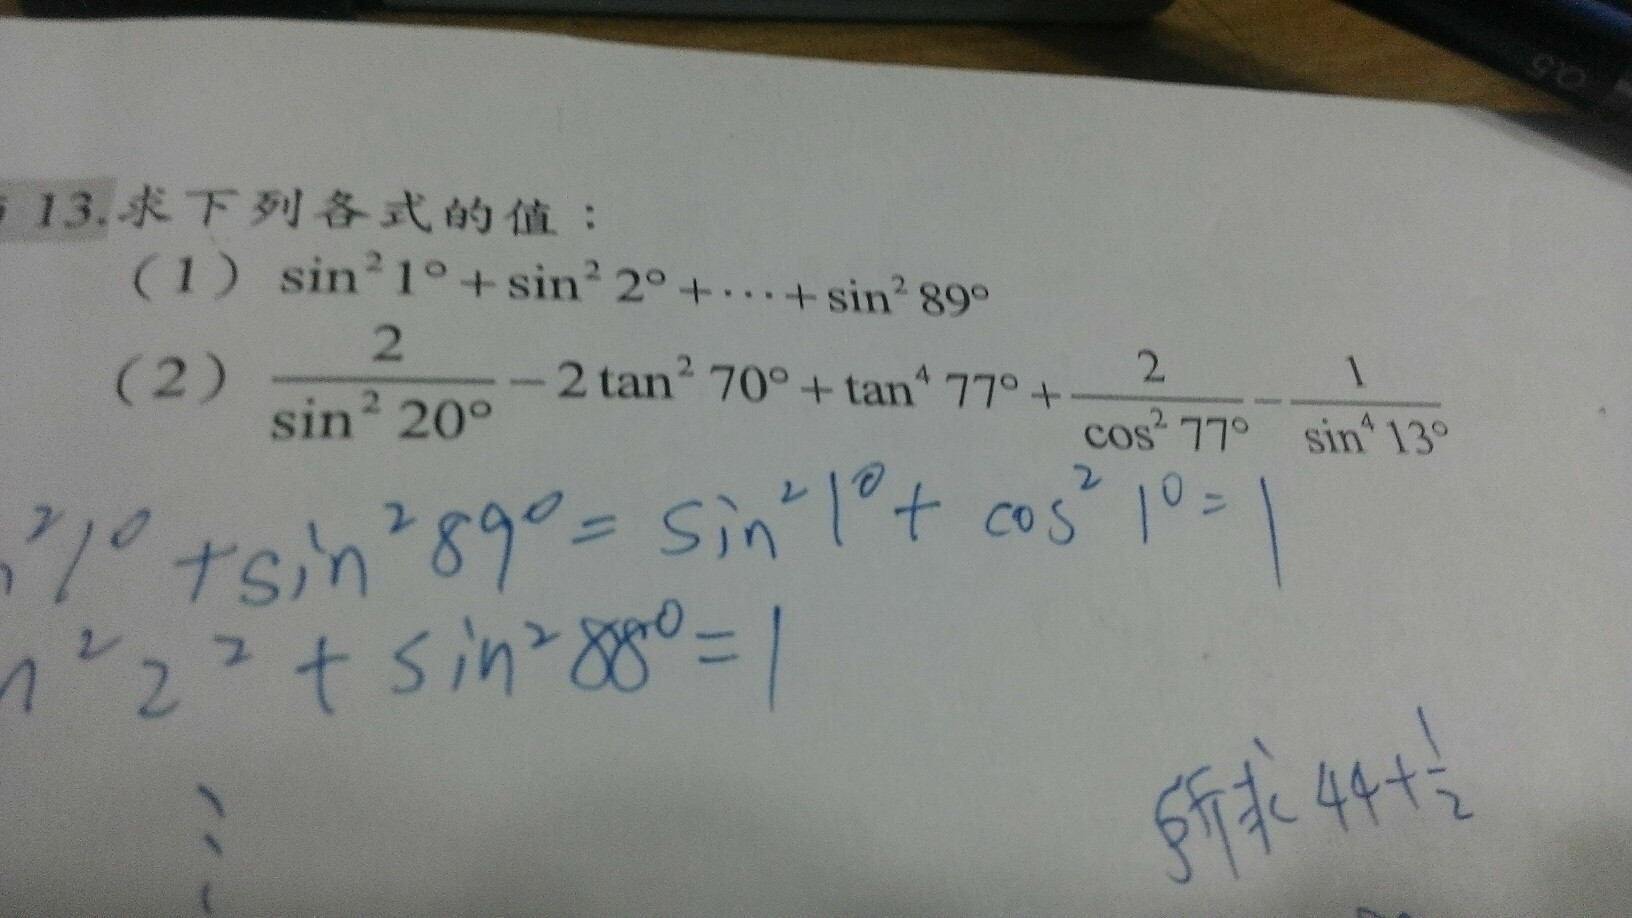 13.求下列各式的值：
（1） sin²1°+sin²2°+⋯+sin²89°
（2） 2/sin²20° −2tan²70°+tan⁴77°+ 2/cos²77° − 1/sin⁴13°
²1°+sin²89°=sin²1°+cos²1°=1
n²2²+sin²88°=1
⋮
所求44+1/2
0.5